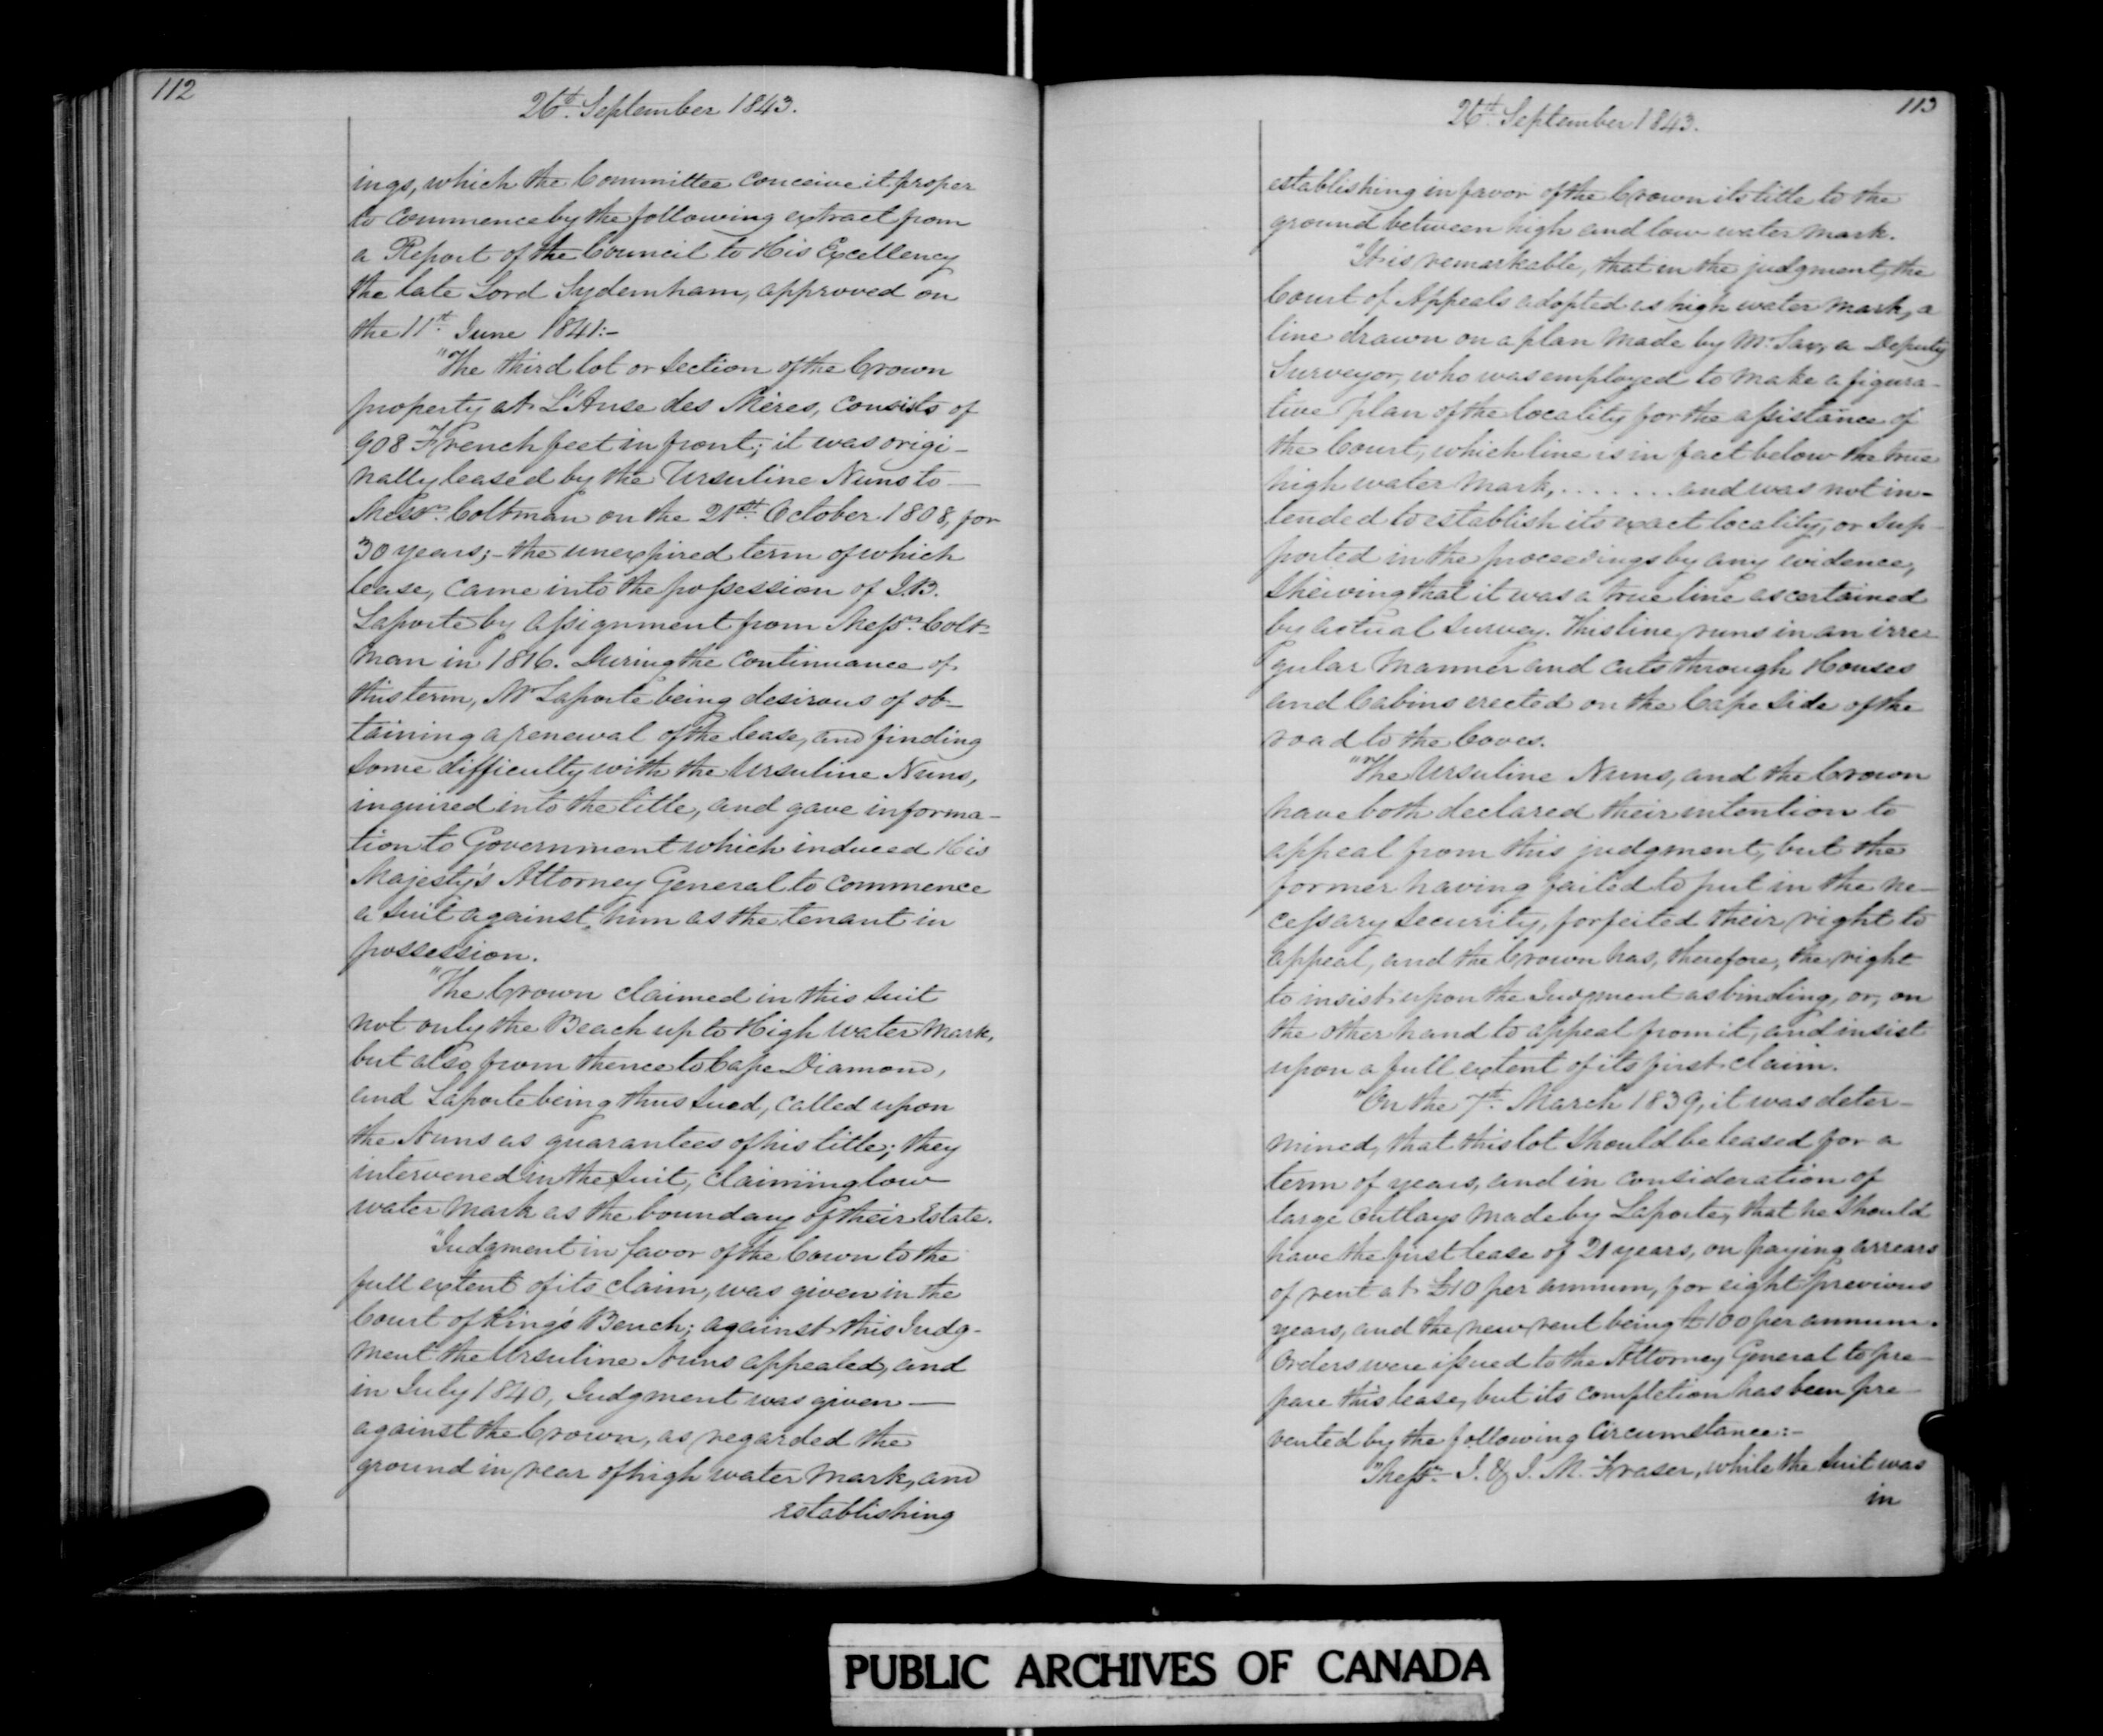 112
26th. September 1843.
ings, which the Committee conceive it proper
to commence by the following extract from
a Report of the Council to His Excellency
the late Lord Sydenham, approved on
the 11th. June 1841:-
"The third lot or section of the Crown
property at L'Anse des Mères, consists of
908 French feet in front; it was origi-
nally leased by the Ursuline Nuns to —
Messrs. Coltman on the 21st. October 1808, for
30 years;- the unexpired term of which
lease, came into the possession of J.B.
Laporte by assignment from Messrs. Colt-
man in 1816. During the continuance of
this term, Mr Laporte being desirous of ob-
taining a renewal of the lease, and finding
some difficulty with the Ursuline Nuns,
inquired into the title, and gave informa-
tion to Government which induced His
Majesty's Attorney General to commence
a suit against him as the tenant in
possession.
"The Crown claimed in this suit
not only the Beach up to High water mark,
but also from thence to Cape Diamond,
and Laporte being thus sued, called upon
the Nuns as guarantees of his title; they
intervened in the suit, claiming low
water mark as the boundary of their Estate.
"Judgment in favor of the Cown to the
full extent of its claim, was given in the
Court of King's Bench; against this Judg-
ment the Ursuline Nuns appealed, and
in July 1840, Judgment was given —
against the Crown, as regarded the
ground in rear of high water mark, and
establishing
113
26th. September 1843.
establishing in favor of the Crown its title to the
ground between high and low water mark.
"It is remarkable, that in the judgment, the
Court of Appeals adopted as high water mark, a
line drawn on a plan made by Mr. a Deputy
Surveyor, who was employed to make a figura-
tive plan of the locality for the assistance of
the Court, which line is in fact below the true
high water mark, . . . . . . . and was not in-
tended to establish its exact locality, or sup-
ported in the proceedings by any evidence,
shewing that it was a true line ascertained
by actual survey. This line runs in an irre-
gular manner and cuts through Houses
and Cabins erected on the Cape side of the
road to the Coves.
"The Ursuline Nuns, and the Crown
have both declared their intention to
appeal from this judgment, but the
former having failed to put in the ne-
cessary security, forfeited their right to
appeal, and the Crown has, therefore, the right
to insist upon the Judgment as binding, or, on
the other hand to appeal from it, and insist
upon a full extent of its first claim.
"On the 7th. March 1839, it was deter-
mined, that this lot should be leased for a
term of years, and in consideration of
large outlays made by Laporte, that he should
have the first lease of 21 years, on paying arrears
of rent at £10 per annum, for eight previous
years, and the new rent being £100 per annum.
Orders were issued to the Attorney General to pre-
pare this lease, but its completion has been pre-
vented by the following Circumstance:-
"Messrs. J. & J. M. Fraser, while the suit was
in
PUBLIC ARCHIVES OF CANADA